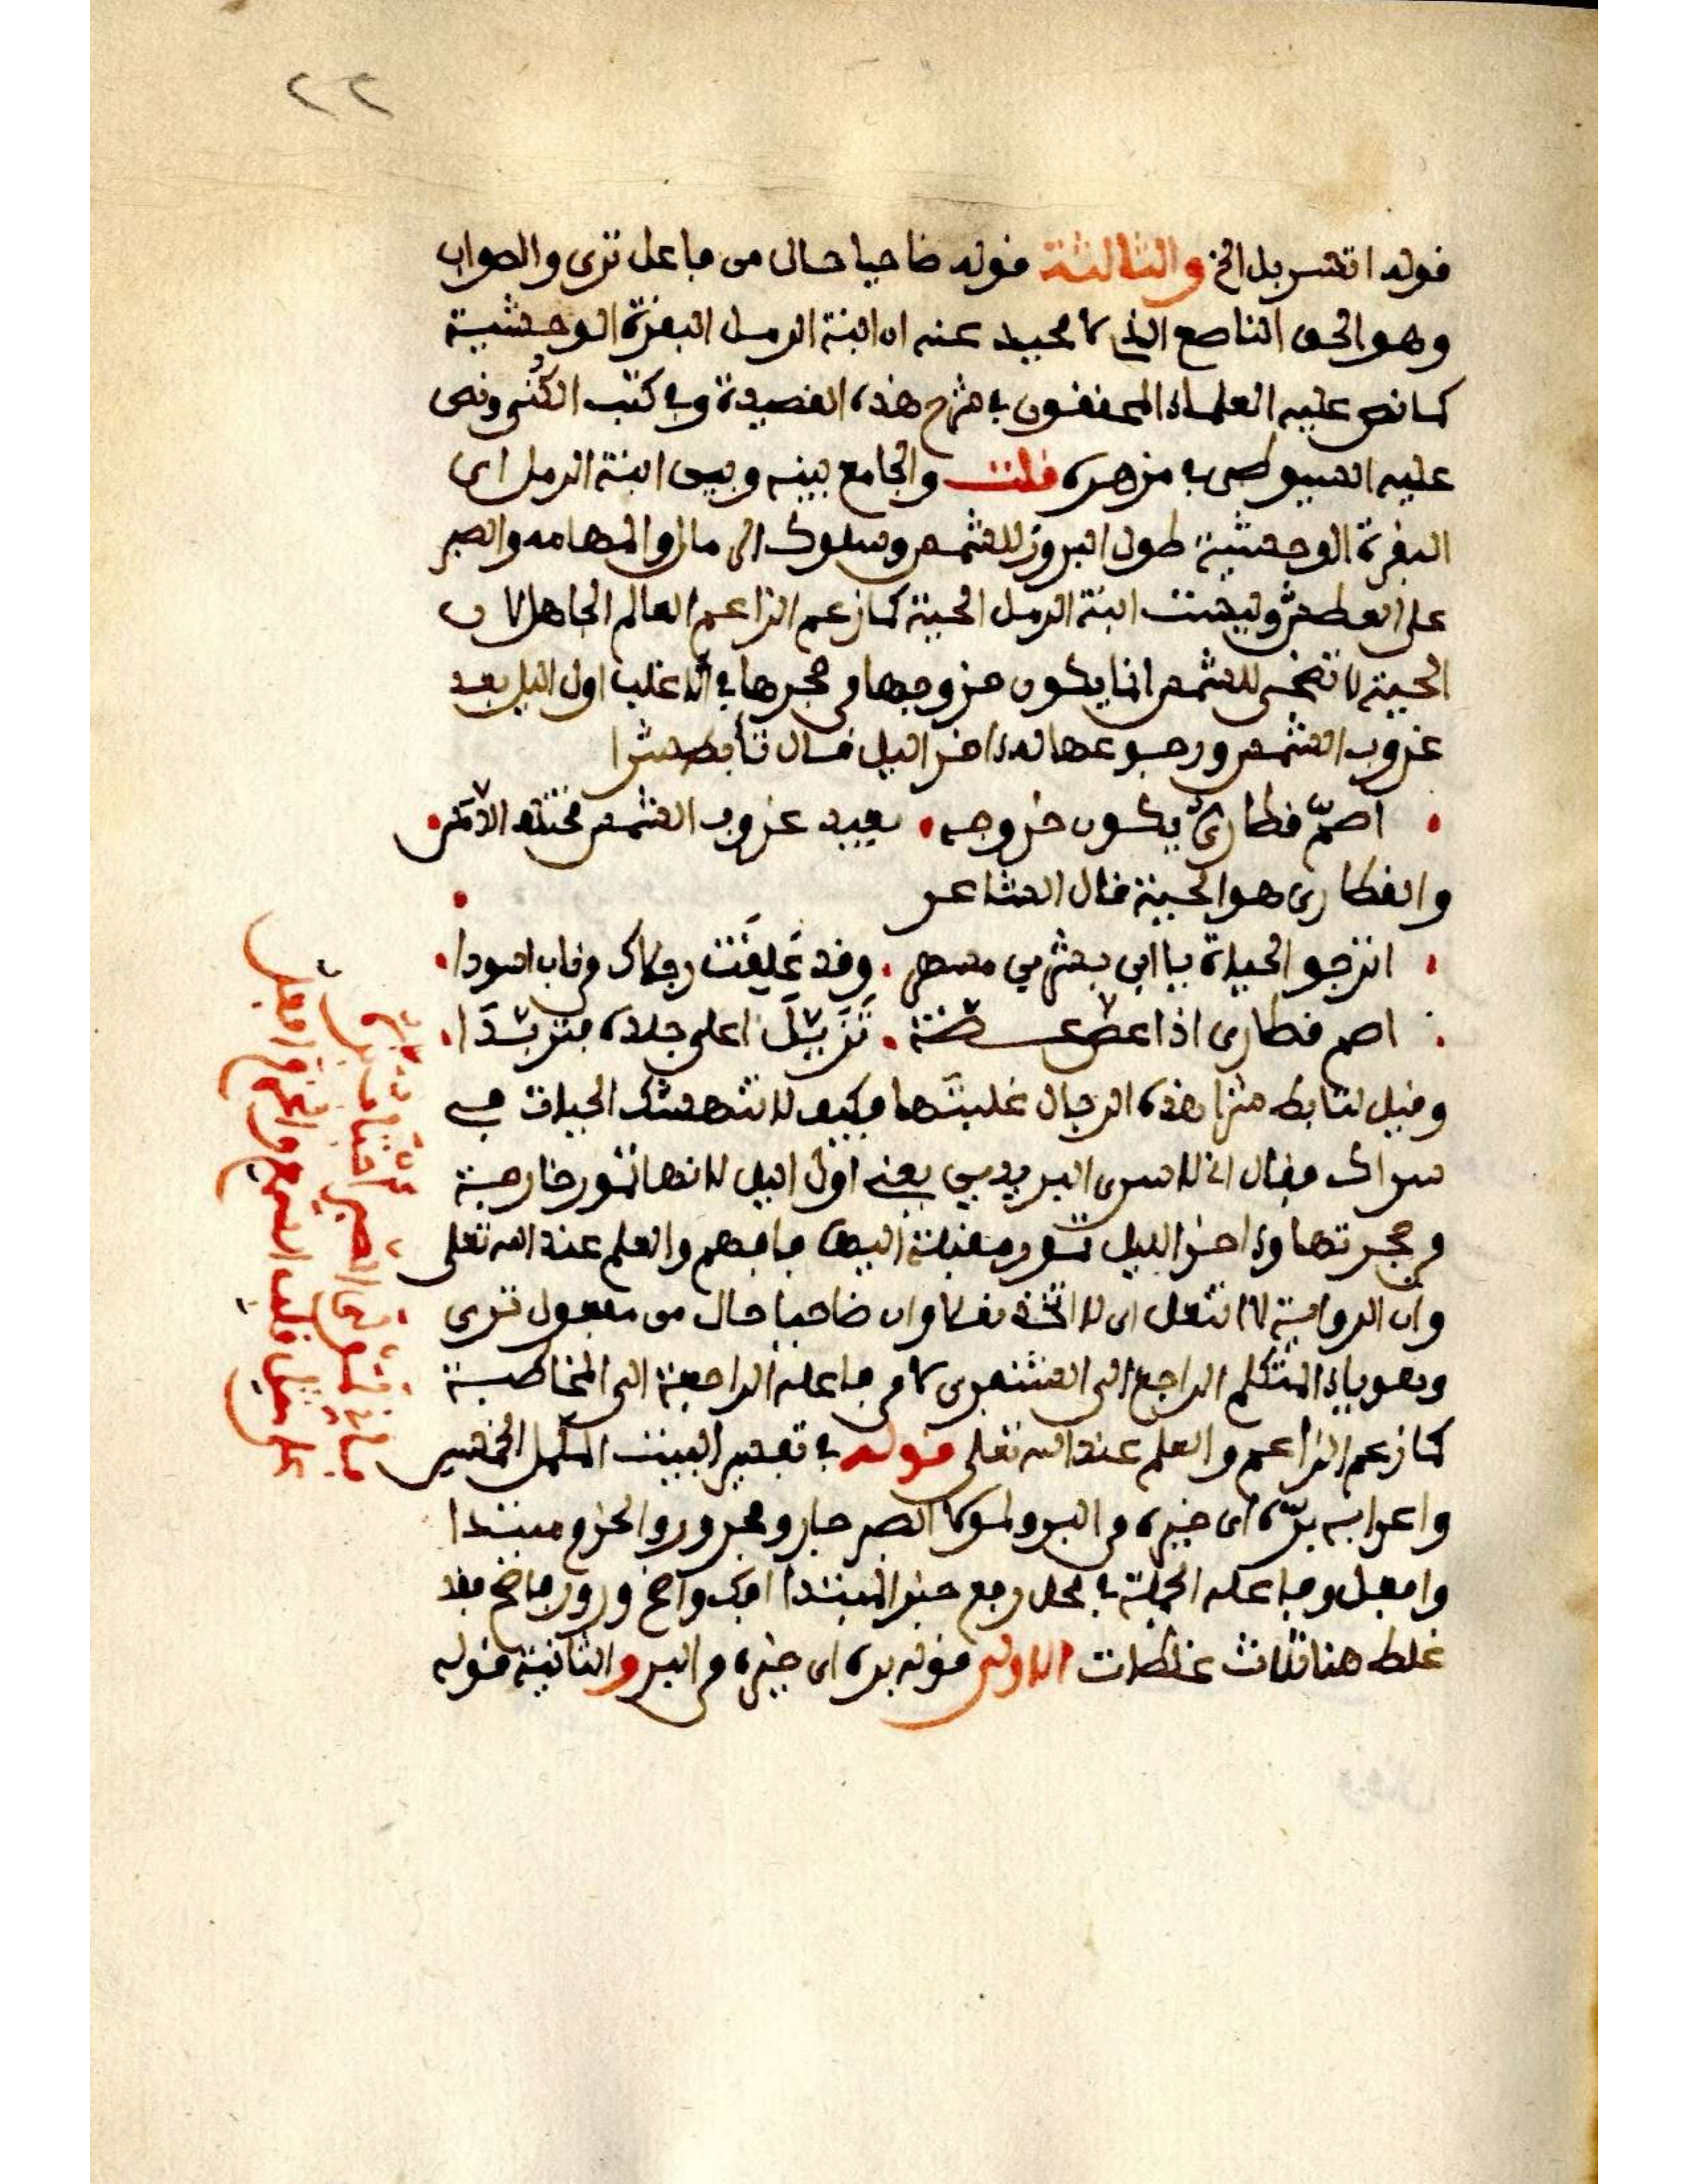 ٢٢
قوله اتسربل الخ والثالثة قوله ضاحيا حال من فاعل ترى والصواب
وهو الحق الناصع الذي لا محيد عنه ان ابنة الرمل البقرة الوحشية
كما نص عليه العلماء المحققون في شرح هذه القصيدة وفي كتب الكُنى ونص
عليه السيوطي في مزهره قلت والجامع بينه وبين ابنة الرمل اي
البقرة الوحشية طول البروز للشمس وسلوك الرمال والمهامه والصبر
على العطش وليست ابنة الرمل الحية كما زعم الزاعم العالم الجاهل لان
الحية لا تضحى للشمس انما يكون خروجها من جحرها في الاغلب اول اليل بعد
غروب الشمس ورجوعها له اخر اليل قال تأبط شرا
اصمّ قطاريّ يكون خروجه بعيد غروب الشمس مختلف الرمس
والقطاري هو الحية قال الشاعر
اترجو الحياة يا ابن بشر بن مسهر وقد عَلِقَت رجلاك من ناب اسودا
اصم قطاري اذا عض عضة تَزَيَّل اعلى جلده فتربّدَا
وقيل لتابط شرا هذه الرجال غلبتَها فكيف لا تنهشك الحيات في
سراك فقال اني لا اسرى البردين يعني اول اليل لانها تمور خارجة
من جحرتها واخر الليل تمور مقبلة اليها فافهم والعلم عند الله تعلى
وان الرواية لا اتنعل اي لا اتخذ نعلا وان ضاحيا حال من مفعول ترى
وهو ياء المتكلم الراجع الى الشنفرى لا من فاعله الراجعة الى المخاطبة
كما زعم الزاعم والعلم عند الله تعلى قوله في تفسير البيت المكمل الخمسين
واعرابه بزّه اي خيره من البر ولمولا الصبر جار ومجرور والحزم مبتدا
وافعل وفاعله الجملة في محل رفع خبر المبتدا افك واضح وزور فاضح فقد
غلط هنا ثلاث غلطات الاولى قوله بزه اي خيره من البر والثانية قوله
فاني لمولى الصبر اجتاب بزّه
على مثل قلب السمع والحزم افعل